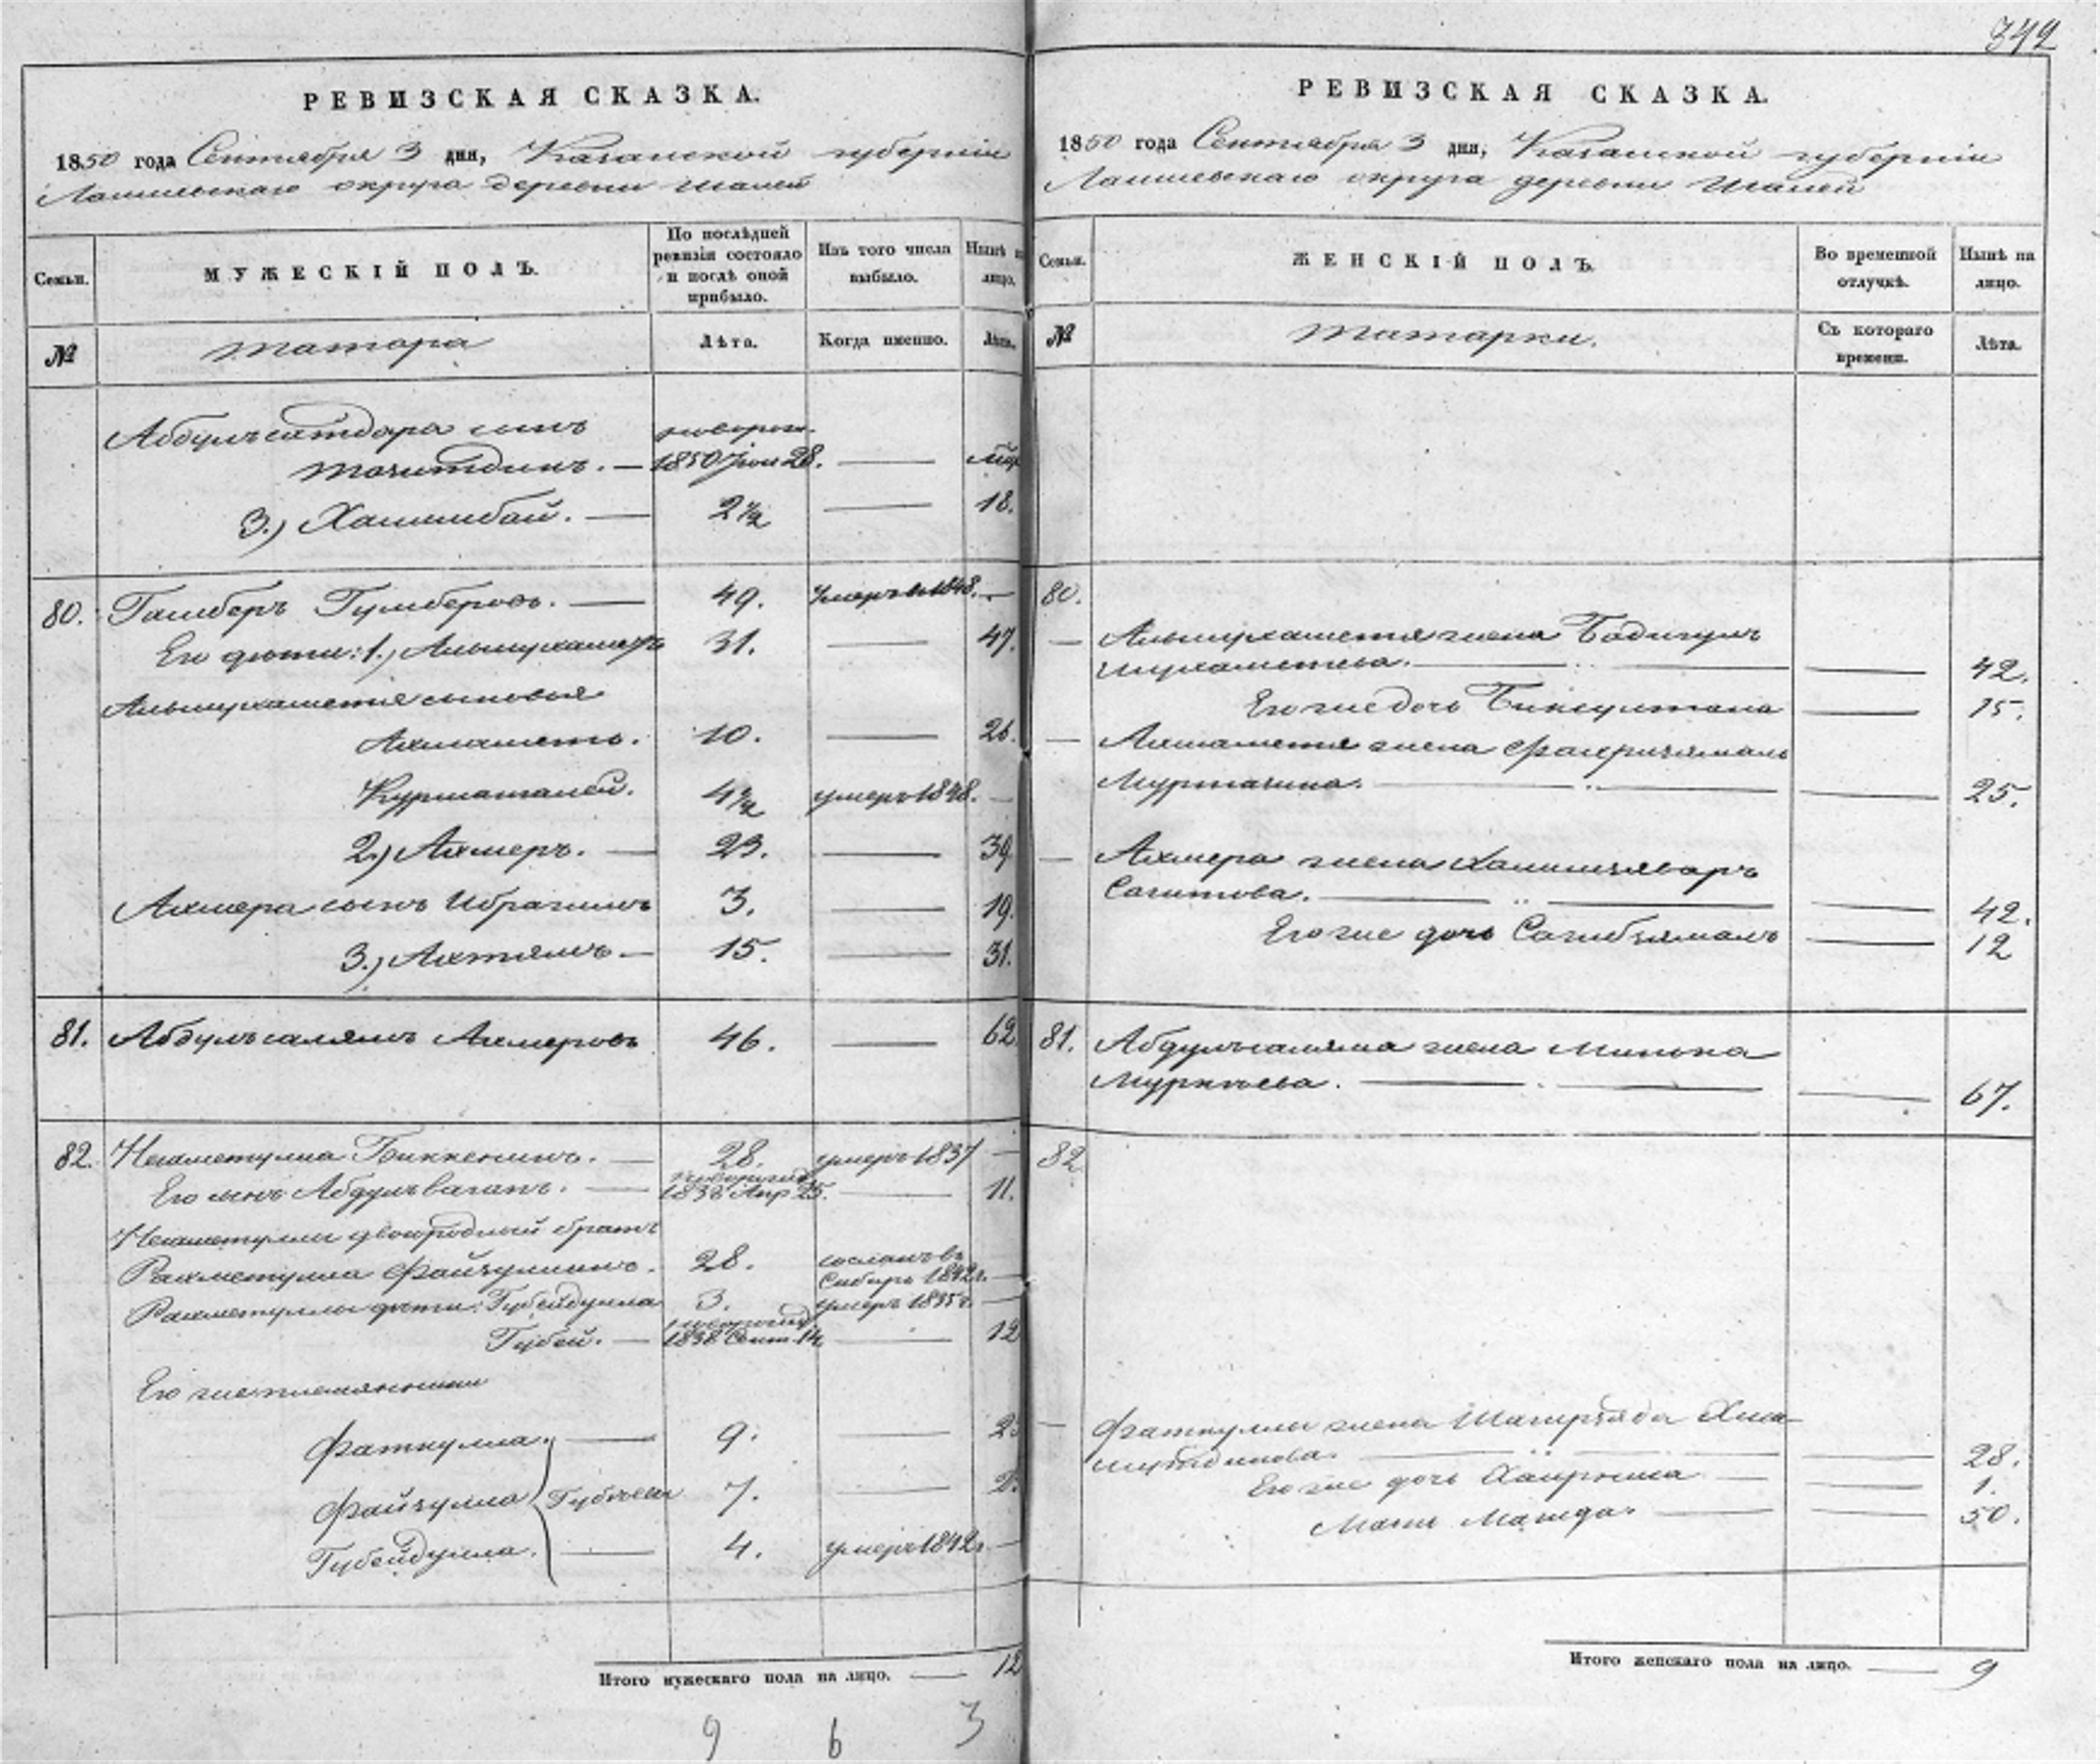 342
РЕВИЗСКАЯ СКАЗКА.
1850 года Сентября 3 дня, Казанской губернiи
Лаишевскаго округа деревни Шалей
Семьи.
МУЖЕСКIЙ ПОЛЪ.
По послѣдней ревизiи состояло и послѣ оной прибыло.
Изъ того числа выбыло.
Нынѣ на лицо.
№
татара
Лѣта.
Когда именно.
Лѣта.
Абдулъсатдара сынъ новорож.
1850 Iюн 28. —
3.) — 2 1/2 — 18.
80. Гумберовъ. — 49. умеръ в 1848. —
Его дѣти: 1.) Альмухаметь 31. — 47.
Альмухаметя сыновья
Ахмаметь. 10. — 26.
4 1/2 умеръ 1848. —
2.) Ахмеръ. — 23. — 39.
Ахмера сынъ Ибрагимъ 3. — 19.
3.) Ахтямъ — 15. — 31.
81. Абдулъсалямъ Ахмеровъ 46. — 62
82. Неаметулла Биккенинъ. — 28. умеръ 1837 —
Его сынъ Абдулъваганъ. — новорожд. 1838 Апр. 25. — 11.
Неаметуллы двоюродный братъ
Рахметулла Файзуллинъ. 28. сосланъ въ Сибирь 1842 г. —
Рахметуллы дѣти: Губейдулла 3. умеръ 1835 г. —
Губей. — новорожд. 1838 Сент. 14. — 12
Его же племянники
Фаткулла. — 9. — 2
Файзулла Губеевы 7. — 2
Губейдулла. — 4. умеръ 1842 г. —
Итого мужескаго пола на лицо. — 12
9 6 3
РЕВИЗСКАЯ СКАЗКА.
1850 года Сентября 3 дня, Казанской губернiи
Лаишевскаго округа деревни Шалей
Семьи.
ЖЕНСКIЙ ПОЛЪ.
Во временной отлучкѣ.
Нынѣ на лицо.
№
татарки.
Съ котораго времени.
Лѣта.
80.
— Альмухаметя жена Бадигулъ
Мухаметева. — — 42.
Его же дочь Биксултана — 15.
— Ахмаметя жена Фахризямалъ
Муртазина. — — 25.
— Ахмера жена
Сагитова. — — 42.
Его же дочь Сагибзямалъ — 12
81. Абдулъсаляма жена
— — 67.
82
— Фаткуллы жена
— — 28.
Его же дочь — — 1.
Мать — — 50.
Итого женскаго пола на лицо. — 9